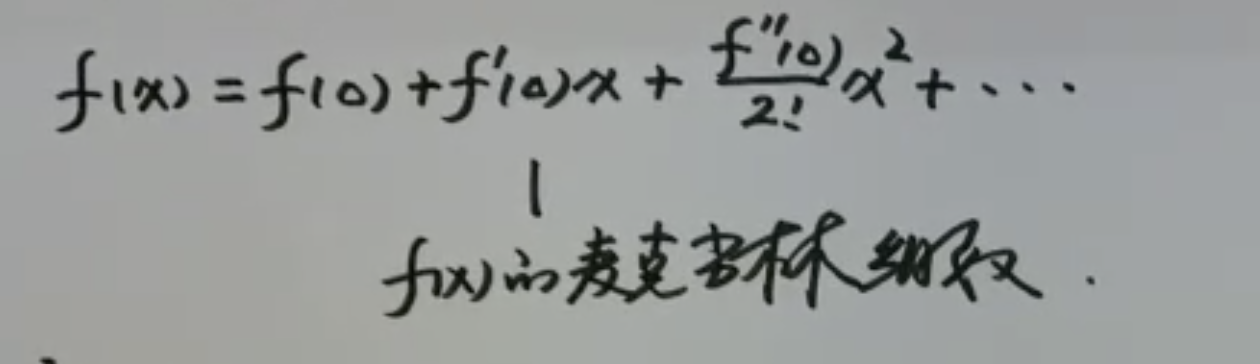 f(x) = f(0) + f'(0)x + \frac{f''(0)}{2!}x^2 + ···
f(x)的麦克劳林级数.